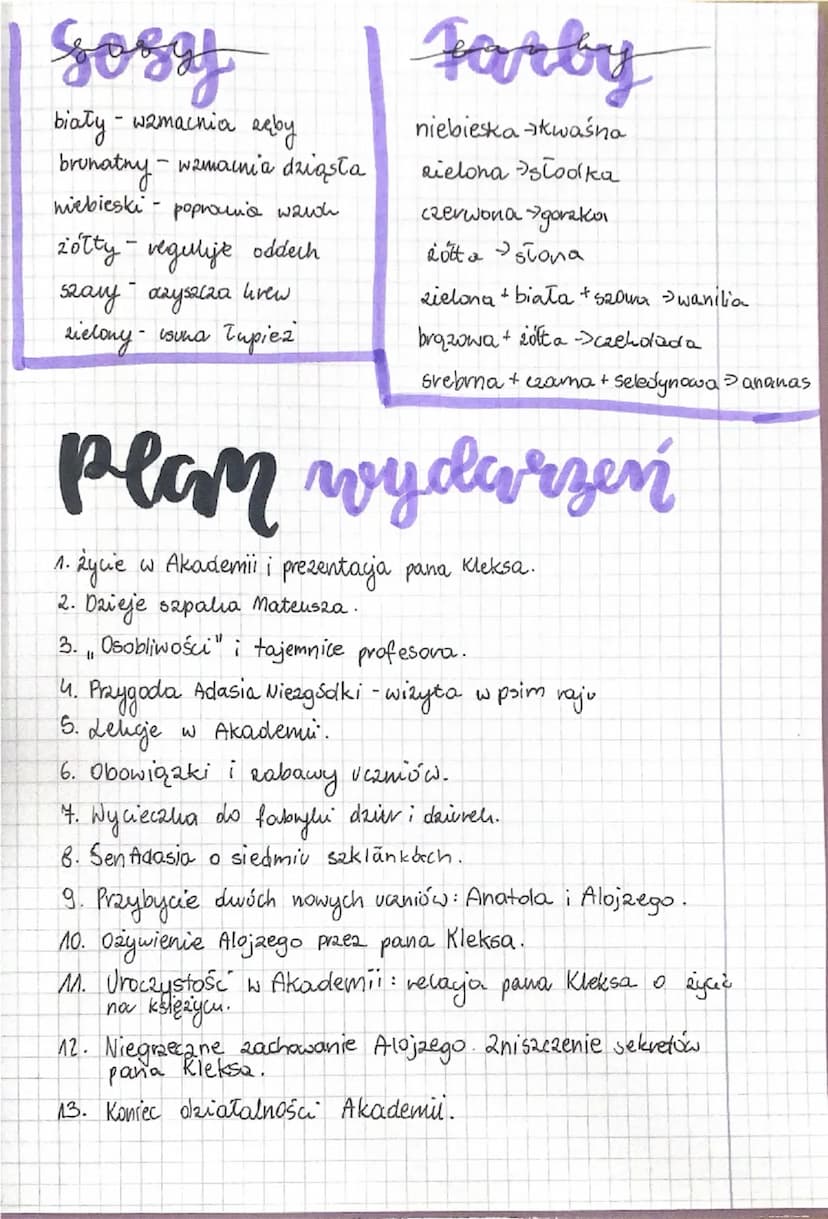 Sosy
biały - wzmacnia zęby
brunatny - wzmacnia dziąsła
niebieski - poprawia wzrok
żółty - reguluje oddech
szary - oczyszcza krew
zielony - usuwa łupież
Farby
niebieska → kwaśna
zielona → słodka
czerwona → gorzka
żółta → słona
zielona + biała + szara → wanilia
brązowa + żółta → czekolada
srebrna + czarna + seledynowa → ananas
plan wydarzeń
1. Życie w Akademii i prezentacja pana Kleksa.
2. Dzieje szpaka Mateusza.
3. „Osobliwości" i tajemnice profesora.
4. Przygoda Adasia Niezgódki - wizyta w psim raju
5. Lekcje w Akademii.
6. Obowiązki i zabawy uczniów.
7. Wycieczka do fabryki dziur i dziurek.
8. Sen Adasia o siedmiu szklankach.
9. Przybycie dwóch nowych uczniów: Anatola i Alojzego.
10. Ożywienie Alojzego przez pana Kleksa.
11. Uroczystość w Akademii: relacja pana Kleksa o życiu
na księżycu.
12. Niegrzeczne zachowanie Alojzego. Zniszczenie sekretów
pana Kleksa.
13. Koniec działalności Akademii.